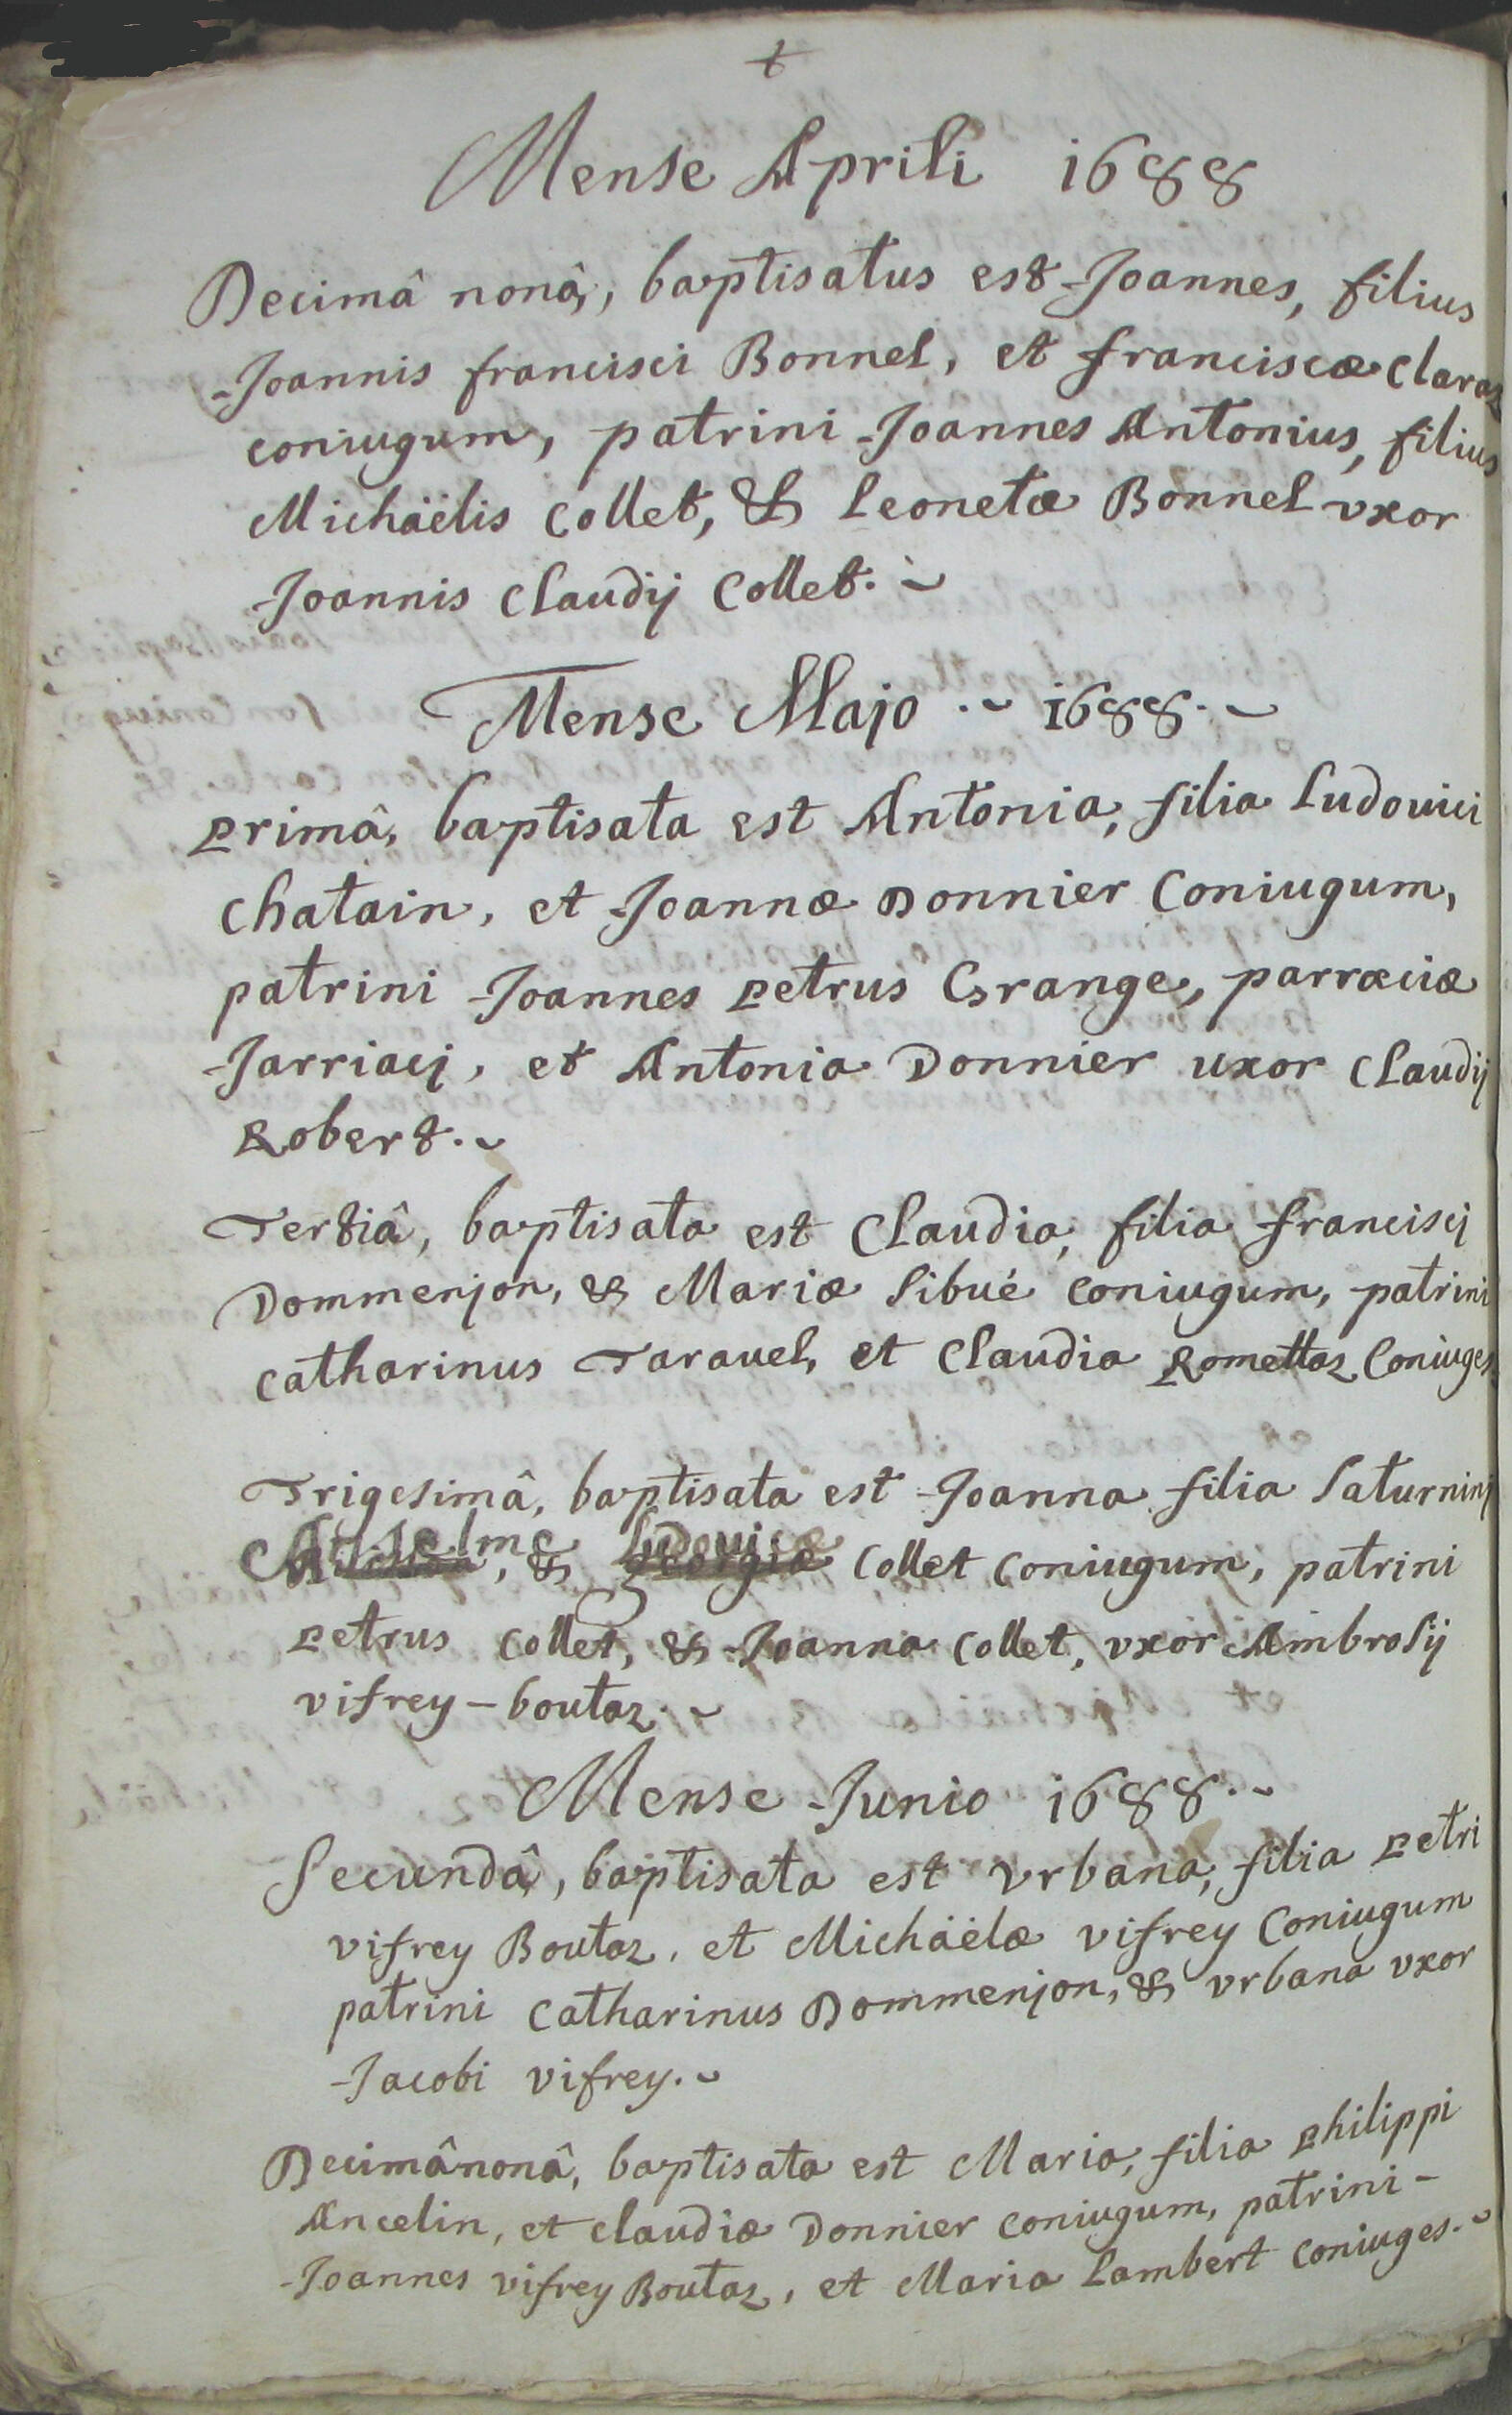 +
Mense Aprili 1688
Decimâ nonâ, baptisatus est Joannes, filius
Joannis francisci Bonnel, et franciscæ Claraz
coniugum, patrini Joannes Antonius, filius
Michäelis Collet, & Leonetæ Bonnel vxor
Joannis Claudij Collet.
Mense Majo 1688.
Primâ, baptisata est Antonia, filia Ludouici
Chatain, et Joannæ Donnier Coniugum,
patrini Joannes Petrus Grange, parræciæ
Jarriacj, et Antonia Donnier uxor Claudij
Robert.
Tertiâ, baptisata est Claudia, filia franciscj
Dommenjon, & Mariæ Sibué coniugum, patrini
Catharinus Tarauel, et Claudia Romettaz Coniuges
Trigesimâ, baptisata est Joanna filia Saturninj
Anselme Ludouicæ
, & Georgiæ Collet Coniugum, patrini
Petrus Collet, & Joanna Collet, vxor Ambrosij
vifrey-boutaz.
Mense Junio 1688.
Secundâ, baptisata est Vrbana, filia Petri
vifrey Boutaz, et Michäelæ vifrey Coniugum
patrini Catharinus Dommenjon, & vrbana vxor
Jacobi vifrey.
Decimânonâ, baptisata est Maria, filia Philippi
Ancelin, et Claudiæ Donnier coniugum, patrini-
Joannes vifrey Boutaz, et Maria Lambert Coniuges.